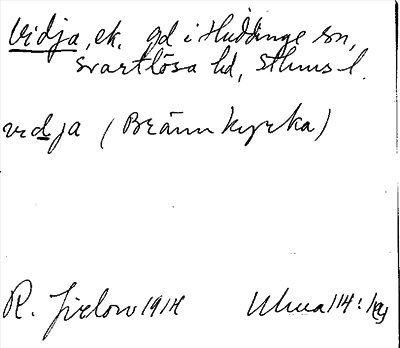 Vidja, ek. gd i Huddinge sn,
Svartlösa hd, Sthms l.
vidja (Brännkyrka)
R. Jirlow 1914 Uhua 114: